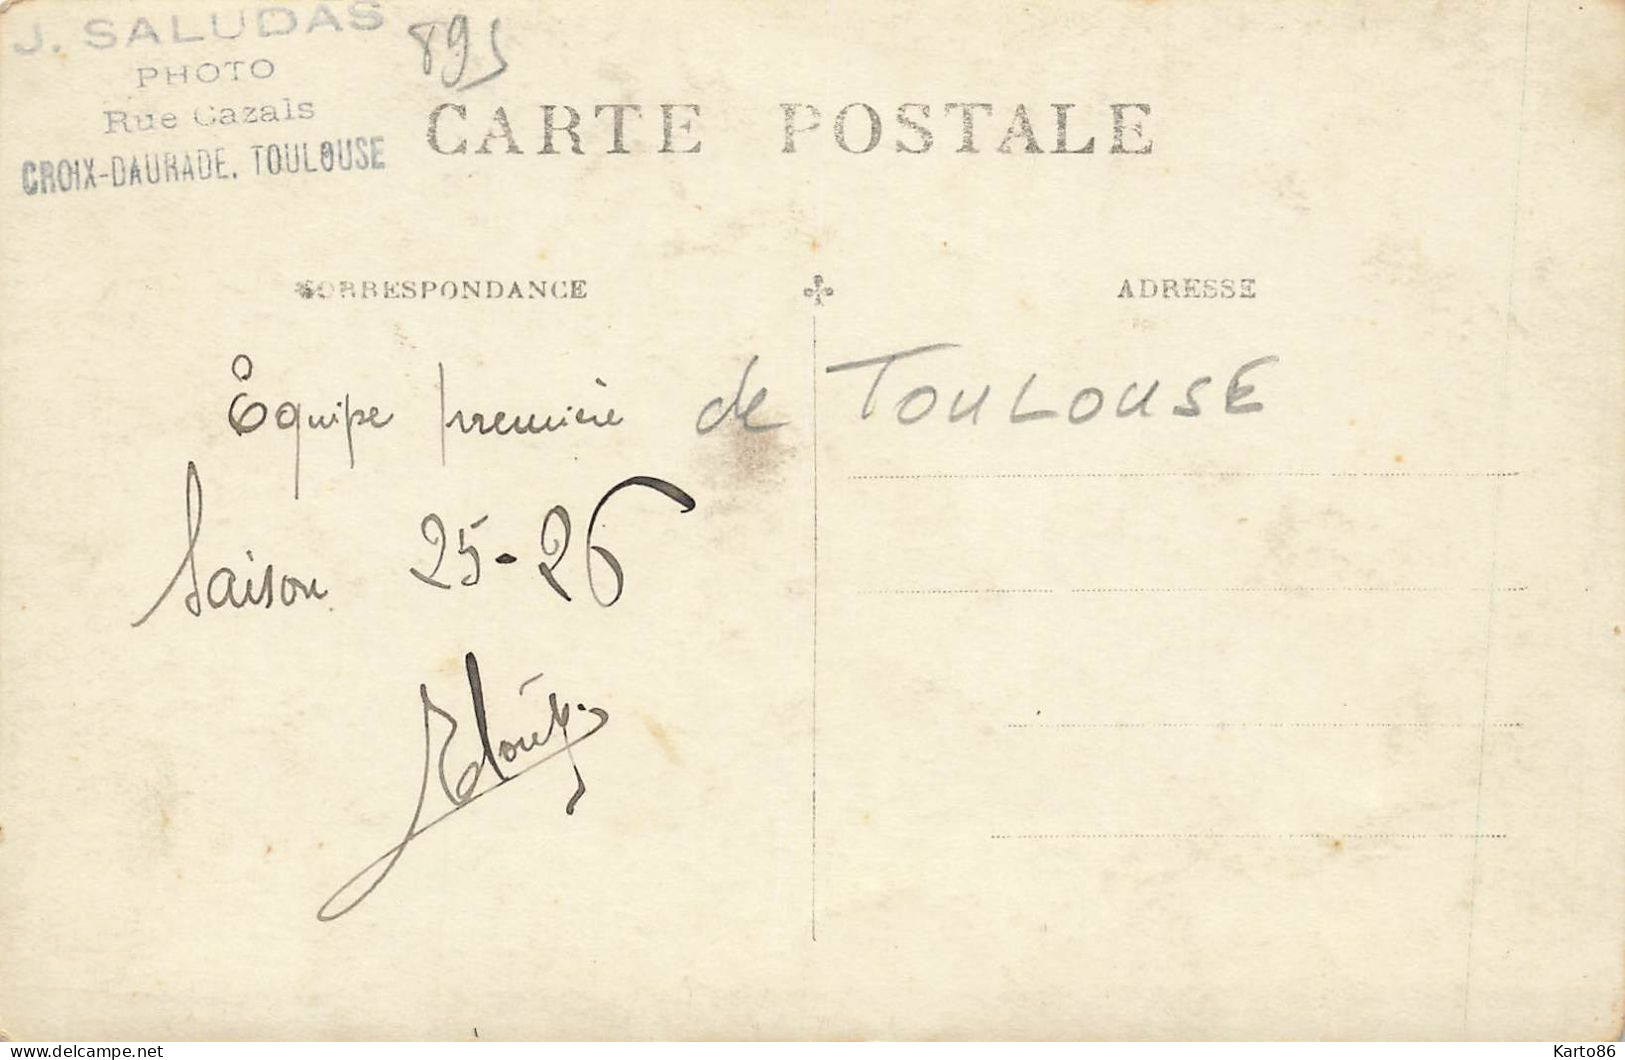 J. SALUDAS
PHOTO
Rue Cazals
CROIX-DAURADE, TOULOUSE
895
CARTE POSTALE
CORRESPONDANCE
ADRESSE
Equipe première de TOULOUSE
Saison 25-26
Karto86